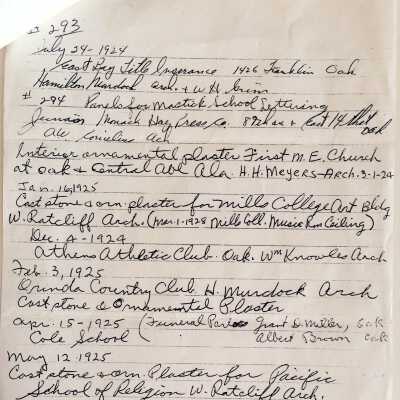 # 293
July 24-1924
East Bay Title Insurance 1426 Franklin Oak
Hamilton Murdock arch. + W H Grim
# 294 Panels for Mastick School Lettering
Monarch Hay Press Co. 87th ave + East 14th St Oak
Interior ornamental plaster First M.E. Church
at oak & Central Ave Ala. H.H. Meyers-Arch. 3-1-24
Jan. 16, 1925
Cast stone & orn. plaster for Mills College Art Bldg
W. Ratcliff Arch. (Mar. 1-1928 Mills Coll. Music Rm Ceiling)
Dec. 4-1924
Athens Athletic Club. Oak. Wm Knowles Arch
Feb. 3, 1925
Orinda Country Club H. Murdock Arch
Cast stone & Ornamental Plaster
Apr. 15-1925 (Funeral Parlors Grant D. Miller, Oak
Cole School Albert Brown Oak
May 12 1925
Cast stone & orn. Plaster for Pacific
School of Religion W. Ratcliff Arch.